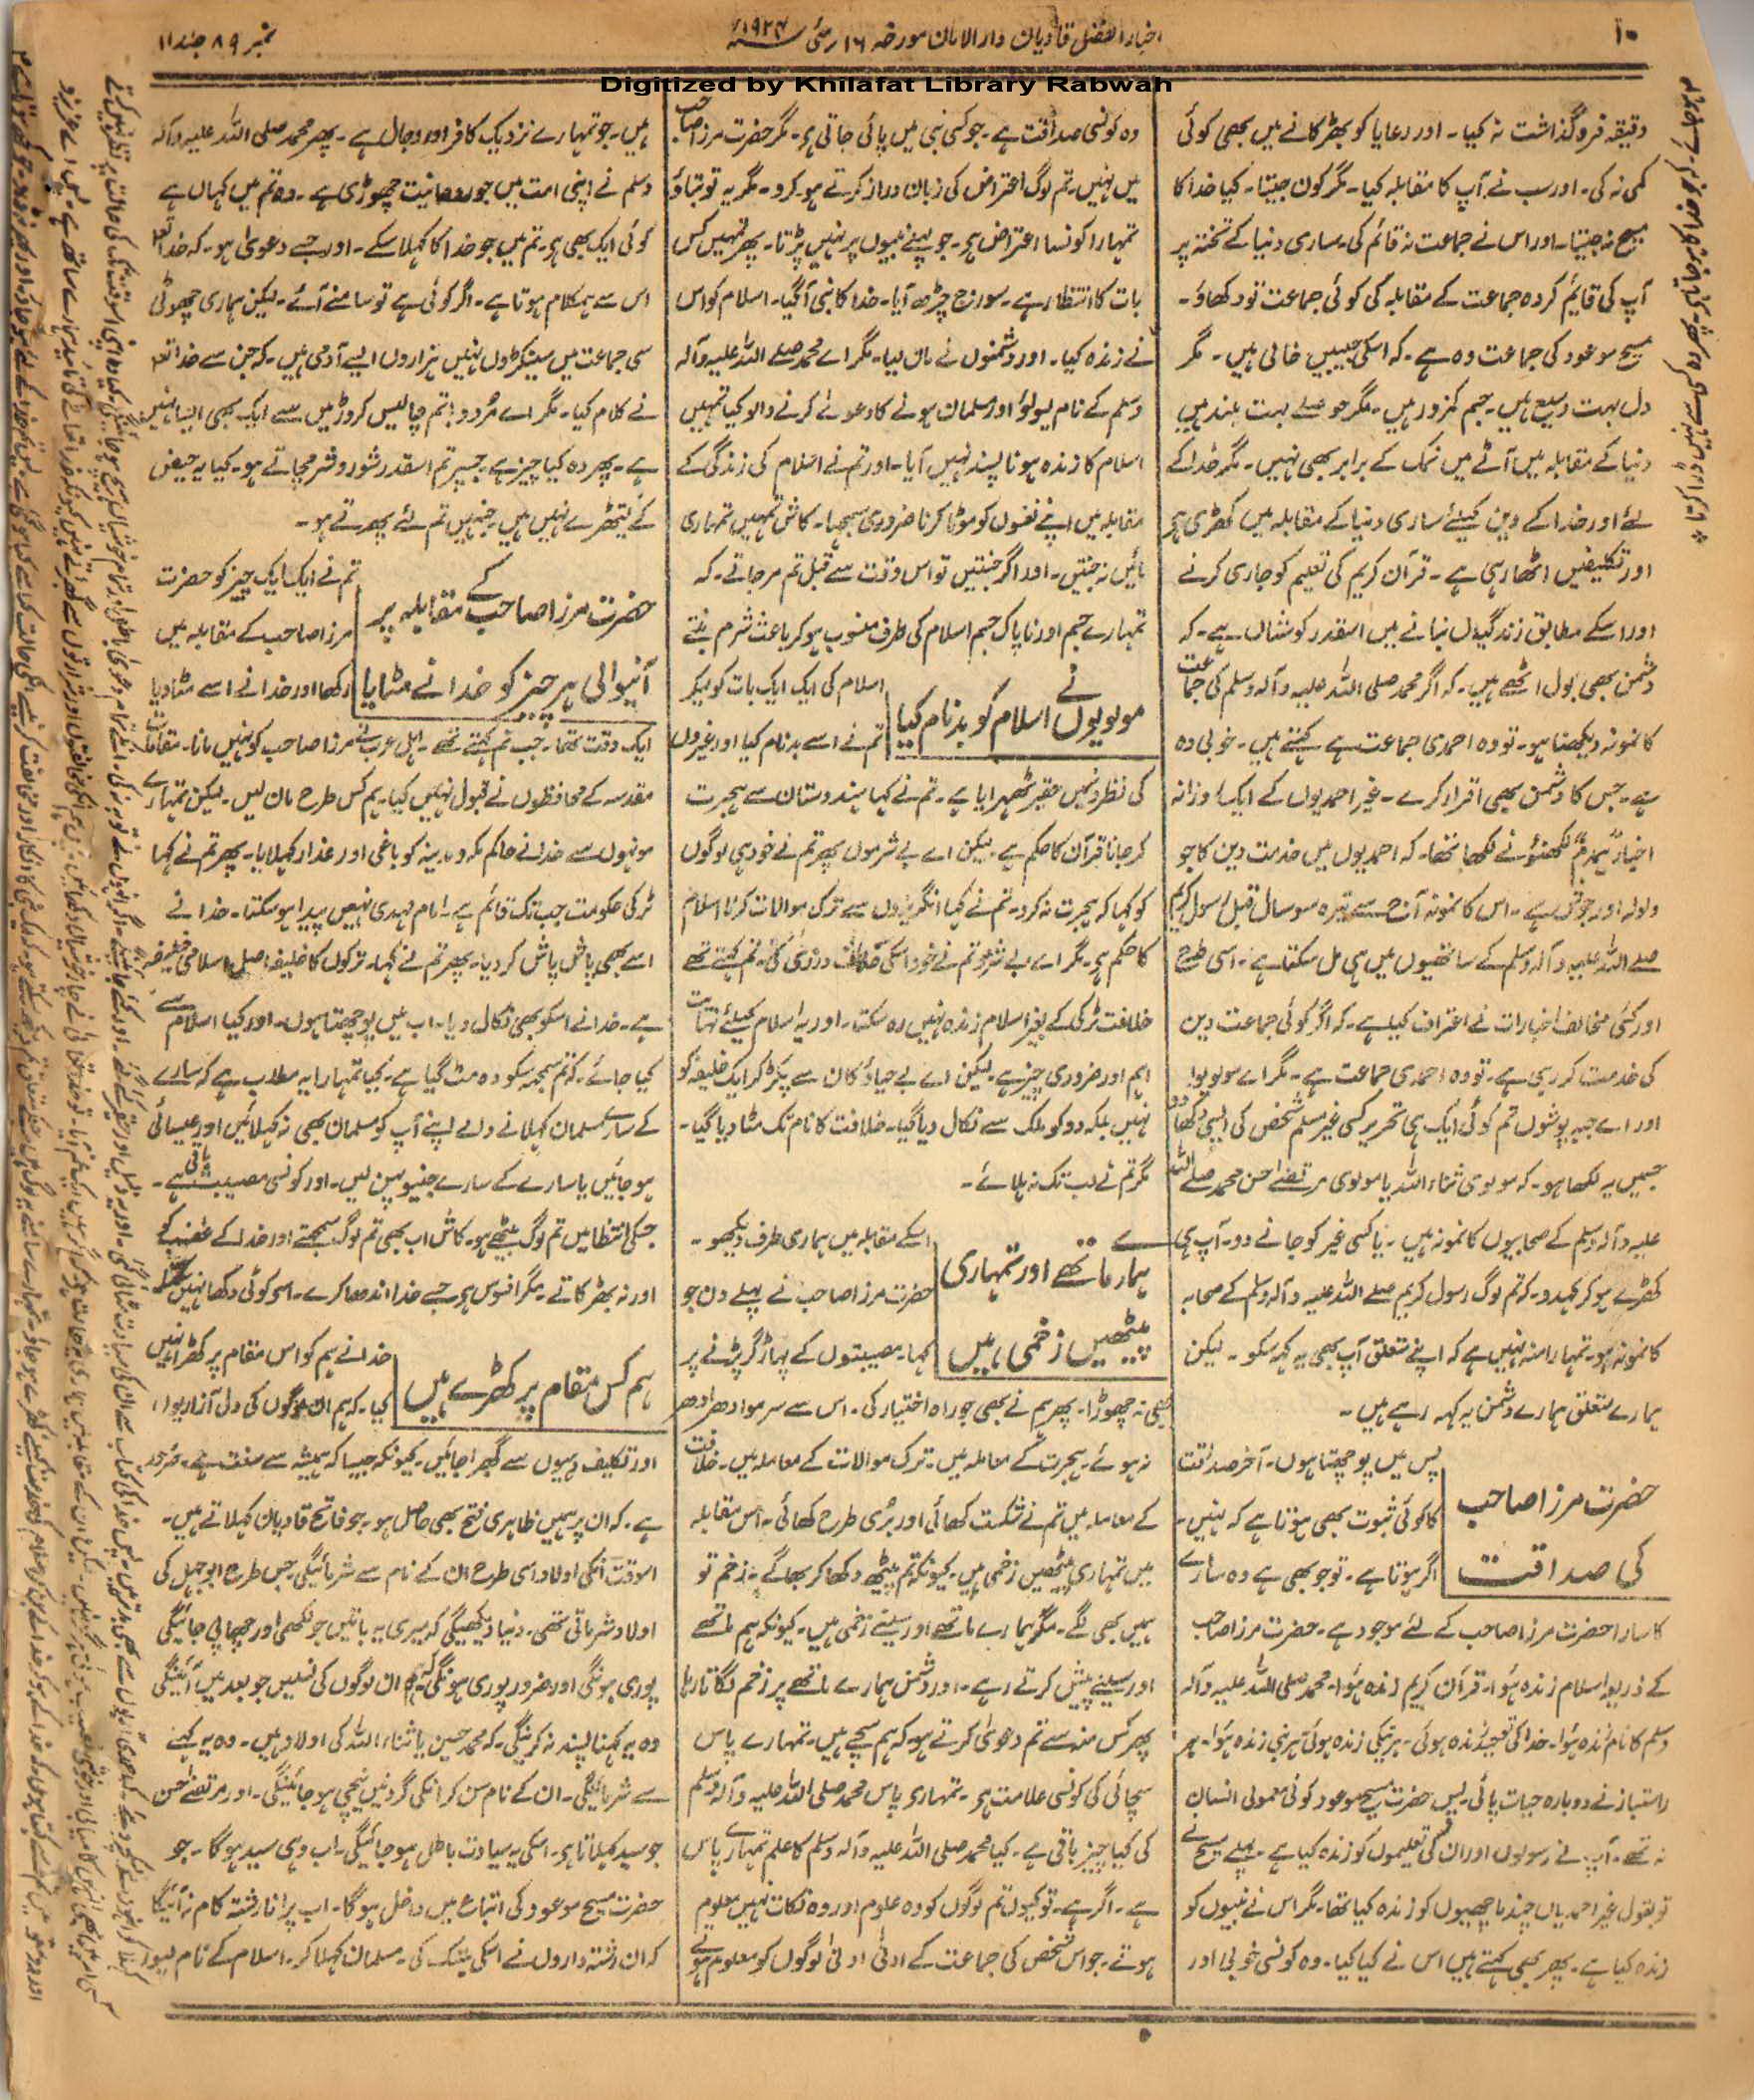 ۱۰
اخبار الفضل قادیان دارالامان مورخہ ۱۶ مئی ۱۹۲۴ء
نمبر ۸۹ جلد ۱۱
Digitized by Khilafat Library Rabwah
دقیقہ فروگذاشت نہ کیا۔ اور رعایا کو بھڑکانے میں بھی کوئی
کمی نہ کی۔ اور سب نے آپ کا مقابلہ کیا۔ مگر کون جیتا۔ کیا خدا کا
مسیح نہ جیتا۔ اور اس نے جماعت نہ قائم کی۔ ساری دنیا کے تختہ پر
آپ کی قائم کردہ جماعت کے مقابلہ کی کوئی جماعت تو دکھاؤ۔
مسیح موعود کی جماعت وہ ہے۔ کہ اسکی جیبیں خالی ہیں۔ مگر
دل بہت وسیع ہیں۔ جسم کمزور ہیں۔ مگر حوصلے بہت بلند ہیں
دنیا کے مقابلہ میں آٹے میں نمک کے برابر بھی نہیں۔ مگر خدا کے
لئے اور خدا کے دین کیلئے ساری دنیا کے مقابلہ میں کھڑی ہے
اور تکلیفیں اٹھا رہی ہے۔ قرآن کریم کی تعلیم کو جاری کرنے
اور اسکے مطابق زندگیاں بنانے میں اسقدر کوشاں ہے۔ کہ
دشمن بھی بول اٹھے ہیں۔ کہ اگر محمد صلی اللہ علیہ وآلہ وسلم کی جماعت
کا نمونہ دیکھنا ہو۔ تو وہ احمدی جماعت ہے کہتے ہیں۔ خوبی وہ
ہے۔ جس کا دشمن بھی اقرار کرے۔ غیر احمدیوں کے ایک روزانہ
اخبار ہمدم لکھنؤ نے لکھا تھا۔ کہ احمدیوں میں خدمت دین کا جو
ولولہ اور جوش ہے۔ اس کا نمونہ آج سے تیرہ سو سال قبل رسول کریم
صلے اللہ علیہ وآلہ وسلم کے ساتھیوں میں ہی مل سکتا ہے۔ اسی طرح
اور کئی مخالف اخبارات نے اعتراف کیا ہے۔ کہ اگر کوئی جماعت دین
کی خدمت کر رہی ہے۔ تو وہ احمدی جماعت ہے۔ مگر اے مولویو!
اور اے جبہ پوشوں تم کوئی ایک ہی تحریر کسی غیر مسلم شخص کی ایسی دکھا دو
جسمیں یہ لکھا ہو۔ کہ مولوی ثناء اللہ یا مولوی مرتضےٰ حسن محمد صلے اللہ
علیہ وآلہ وسلم کے صحابیوں کا نمونہ ہیں۔ یا کسی غیر کو جانے دو۔ آپ ہی
کھڑے ہو کر کہدو۔ کہ تم لوگ رسول کریم صلے اللہ علیہ وآلہ وسلم کے صحابہ
کا نمونہ ہو۔ تمہارا منہ نہیں ہے کہ اپنے متعلق آپ بھی یہ کہہ سکو۔ لیکن
ہمارے متعلق ہمارے دشمن یہ کہہ رہے ہیں۔
حضرت مرزا صاحب
کی صداقت
پس میں پوچھتا ہوں۔ آخر صداقت
کا کوئی ثبوت بھی ہوتا ہے کہ نہیں۔
اگر ہوتا ہے۔ تو جو بھی ہے وہ سارے
کا سارا حضرت مرزا صاحب کے لئے موجود ہے۔ حضرت مرزا صاحب
کے ذریعہ اسلام زندہ ہوا۔ قرآن کریم زندہ ہوا۔ محمد صلی اللہ علیہ وآلہ
وسلم کا نام زندہ ہوا۔ خدا کی توحید زندہ ہوئی۔ ہر نیکی زندہ ہوئی ہر نبی زندہ ہوا۔ ہر
راستباز نے دوبارہ حیات پائی۔ پس حضرت مسیح موعود کوئی معمولی انسان
نہ تھے۔ آپ نے رسولوں اور ان کی تعلیموں کو زندہ کیا ہے۔ پہلے مسیح نے
تو بقول غیر احمدیاں چند ماچھیوں کو زندہ کیا تھا۔ مگر اس نے نبیوں کو
زندہ کیا ہے۔ پھر بھی کہتے ہیں اس نے کیا کیا۔ وہ کونسی خوبی اور
وہ کونسی صداقت ہے۔ جو کسی نبی میں پائی جاتی ہو۔ مگر حضرت مرزا صاحب
میں نہیں۔ تم لوگ اعتراض کی زبان دراز کرتے ہو۔ کرو۔ مگر یہ تو بتاؤ
تمہارا کونسا اعتراض ہے۔ جو پہلے نبیوں پر نہیں پڑتا۔ پھر تمہیں کس
بات کا انتظار ہے۔ سورج چڑھ آیا۔ خدا کا نبی آگیا۔ اسلام کو اس
نے زندہ کیا۔ اور دشمنوں نے مان لیا۔ مگر اے محمد صلے اللہ علیہ وآلہ
وسلم کے نام لیوؤا اور مسلمان ہونے کا دعوےٰ کرنے والو کیا تمہیں
اسلام کا زندہ ہونا پسند نہیں آیا۔ اور تم نے اسلام کی زندگی کے
مقابلہ میں اپنے نفسوں کو موٹا کرنا ضروری سمجھا۔ کاش تمہیں تمہاری
مائیں نہ جنتیں۔ اور اگر جنتیں تو اس وقت سے قبل تم مر جاتے۔ کہ
تمہارے جسم اور ناپاک جسم اسلام کی طرف منسوب ہو کر باعث شرم بنتے
مولویوں نے اسلام کو بدنام کیا
اسلام کی ایک ایک بات کو لیکر
تم نے اسے بدنام کیا اور غیروں
کی نظروں میں حقیر ٹھہرایا ہے۔ تم نے کہا ہندوستان سے ہجرت
کر جانا قرآن کا حکم ہے۔ لیکن اے بے شرموں پھر تم نے خود ہی لوگوں
کو کہا کہ ہجرت نہ کرو۔ تم نے کہا انگریزوں سے ترک موالات کرنا اسلام
کا حکم ہے۔ مگر اے بے شرمو تم نے خود اسکی خلاف ورزی کی۔ تم کہتے تھے
خلافت ٹرکی کے بغیر اسلام زندہ نہیں رہ سکتا۔ اور یہ اسلام کیلئے نہایت
اہم اور ضروری چیز ہے۔ لیکن اے بے حیاؤ کان سے پکڑ کر ایک خلیفہ کو
نہیں بلکہ دو کو ملک سے نکال دیا گیا۔ خلافت کا نام تک مٹا دیا گیا۔
مگر تم نے لب تک نہ ہلائے۔
ہمارے ماتھے اور تمہاری
پیٹھیں زخمی ہیں
اسکے مقابلہ میں ہماری طرف دیکھو۔
حضرت مرزا صاحب نے پہلے دن جو
کہا۔ مصیبتوں کے پہاڑ گر پڑنے پر
بھی نہ چھوڑا۔ پھر ہم نے بھی جو راہ اختیار کی۔ اس سے سرمو ادھر ادھر
نہ ہوئے۔ ہجرت کے معاملہ میں۔ ترک موالات کے معاملہ میں۔ خلافت
کے معاملہ میں تم نے شکست کھائی اور بری طرح کھائی۔ اس مقابلہ
میں تمہاری پیٹھیں زخمی ہیں۔ کیونکہ تم پیٹھ دکھا کر بھاگے۔ زخم تو
ہمیں بھی لگے۔ مگر ہمارے ماتھے اور سینے زخمی ہیں۔ کیونکہ ہم ماتھے
اور سینے پیش کرتے رہے۔ اور دشمن ہمارے ماتھے پر زخم لگاتا رہا
پھر کس منہ سے تم دعویٰ کرتے ہو کہ ہم سچے ہیں۔ تمہارے پاس
سچائی کی کونسی علامت ہے۔ تمہاری پاس محمد صلی اللہ علیہ وآلہ وسلم
کی کیا چیز باقی ہے۔ کیا محمد صلی اللہ علیہ وآلہ وسلم کا علم تمہارے پاس
ہے۔ اگر ہے۔ تو کیوں تم لوگوں کو وہ علوم اور وہ نکات نہیں معلوم
ہوتے۔ جو اس شخص کی جماعت کے ادنیٰ ادنیٰ لوگوں کو معلوم ہوتے
ہیں۔ جو تمہارے نزدیک کافر اور دجال ہے۔ پھر محمد صلی اللہ علیہ وآلہ
وسلم نے اپنی امت میں جو روحانیت چھوڑی ہے۔ وہ تم میں کہاں ہے
کوئی ایک بھی ہے۔ تم میں جو خدا کا کہلا سکے۔ اور جسے دعویٰ ہو۔ کہ خدا تعالیٰ
اس سے ہمکلام ہوتا ہے۔ اگر کوئی ہے تو سامنے آئے۔ لیکن ہماری چھوٹی
سی جماعت میں سینکڑوں نہیں ہزاروں ایسے آدمی ہیں۔ کہ جن سے خدا تعالیٰ
نے کلام کیا۔ مگر اے مُردو! تم چالیس کروڑ میں سے ایک بھی ایسا نہیں
ہے۔ پھر وہ کیا چیز ہے۔ جسپر تم اسقدر شور و شر مچاتے ہو۔ کیا یہ حیض
کے لیتھڑے نہیں ہیں۔ جنہیں تم لئے پھرتے ہو۔
حضرت مرزا صاحب کے مقابلہ پر
آنیوالی ہر چیز کو خدا نے مٹایا
تم نے ایک ایک چیز کو حضرت
مرزا صاحب کے مقابلہ میں
رکھا اور خدا نے اسے مٹا دیا
ایک وقت تھا۔ جب تم کہتے تھے۔ اہل عرب نے مرزا صاحب کو نہیں مانا۔ مقامات
مقدسہ کے محافظوں نے قبول نہیں کیا۔ ہم کس طرح مان لیں۔ لیکن تمہارے
مونہوں سے خدا نے حاکم مکہ و مدینہ کو باغی اور غدار کہلایا۔ پھر تم نے کہا
ٹرکی حکومت جب تک قائم ہے۔ امام مہدی نہیں پیدا ہو سکتا۔ خدا نے
اسے بھی پاش پاش کر دیا۔ پھر تم نے کہا۔ ترکوں کا خلیفہ اصل اسلامی خلیفہ
ہے۔ خدا نے اسکو بھی نکال دیا۔ اب میں پوچھتا ہوں۔ اور کیا اسلام سے
کیا جائے۔ کہ تم سمجھ سکو وہ مٹ گیا ہے۔ کیا تمہارا یہ مطلب ہے کہ سارے
کے سارے مسلمان کہلانے والے اپنے آپ کو مسلمان بھی نہ کہلائیں اور عیسائی
ہو جائیں یا سارے کے سارے جنیو پہن لیں۔ اور کونسی مصیبت باقی ہے۔
جسکی انتظار میں تم لوگ بیٹھے ہو۔ کاش اب بھی تم لوگ سمجھتے اور خدا کے غضب کو
اور نہ بھڑکاتے۔ مگر افسوس ہے جسے خدا اندھا کرے۔ اسے کوئی دکھا نہیں سکتا
ہم کس مقام پر کھڑے ہیں
خدا نے ہم کو اس مقام پر کھڑا نہیں
کیا۔ کہ ہم ان لوگوں کی دل آزاریوں
اور تکلیف دہیوں سے گھبرا جائیں۔ کیونکہ جیسا کہ ہمیشہ سے سنت ہے۔ ضرور
ہے۔ کہ ان پر ہمیں ظاہری فتح بھی حاصل ہو۔ جو فاتح قادیان کہلاتے ہیں۔
اسوقت انکی اولاد اسی طرح ان کے نام سے شرمائیگی۔ جس طرح ابوجہل کی
اولاد شرماتی تھی۔ دنیا دیکھیگی کہ میری یہ باتیں جو لکھی اور چھاپی جائیگی
پوری ہونگی اور ضرور پوری ہونگی۔ کہ ان لوگوں کی نسلیں جو بعد میں آئینگی
وہ یہ کہنا پسند نہ کرینگی۔ کہ محمد حسین یا ثناء اللہ کی اولاد ہیں۔ وہ یہ کہنے
سے شرمائینگی۔ ان کے نام سن کر انکی گردنیں نیچی ہو جائینگی۔ اور مرتضےٰ حسن
جو سید کہلاتا ہے۔ اسکی یہ سیادت باطل ہو جائیگی۔ اب وہی سید ہوگا۔ جو
حضرت مسیح موعود کی اتباع میں داخل ہوگا۔ اب پرانا رشتہ کام نہ آئیگا
کہ ان رشتہ داروں نے اسکی ہتک کی۔ مسلمان کہلا کر۔ اسلام کے نام لیوا